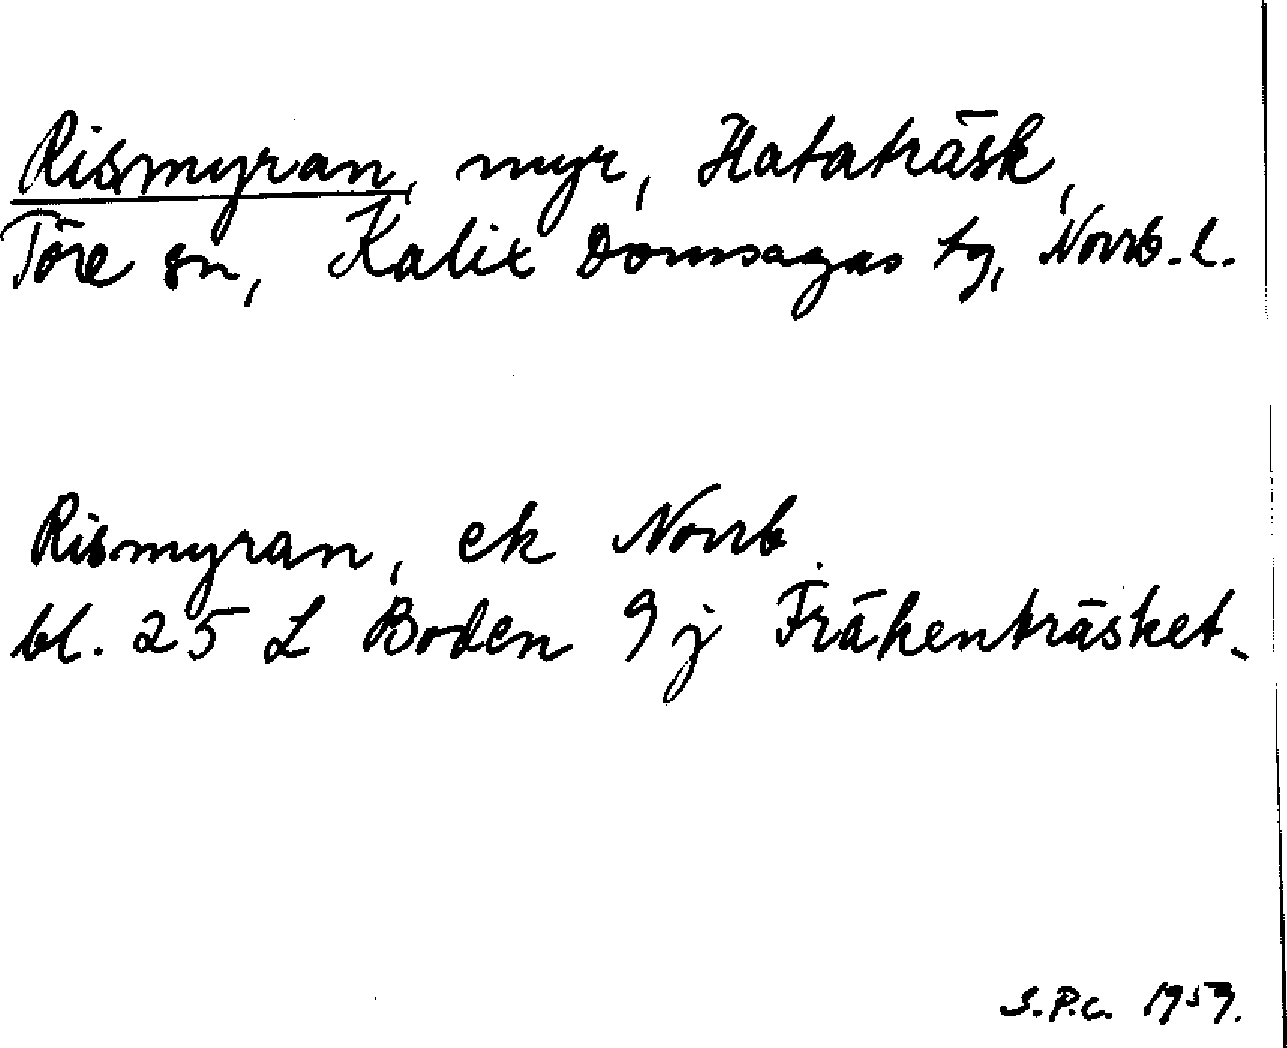 Rismyran, myr, Hataträsk,
Töre sn, Kalix Domsagas tg, Norrb. l.
Rismyran, ek Norrb.
bl. 25 L Boden 9 j Fräkenträsket.
S.P.C. 1959.